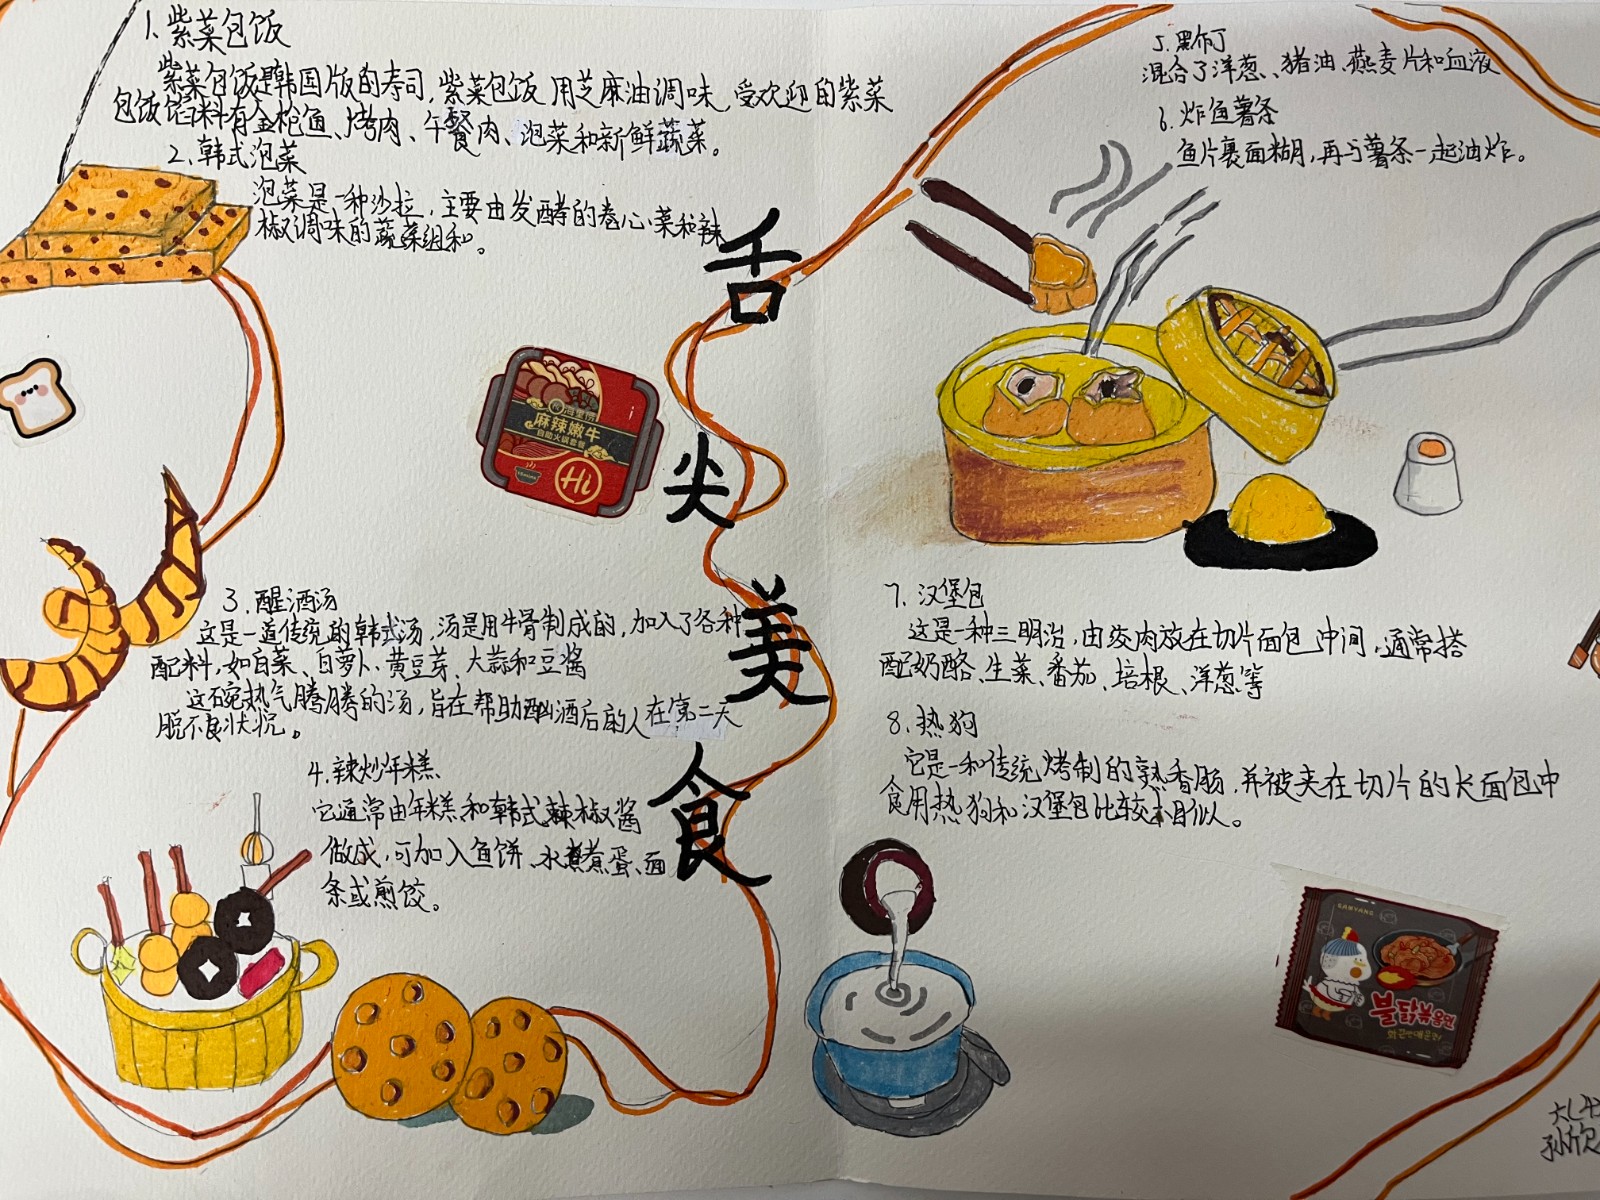 1. 紫菜包饭
紫菜包饭是韩国版的寿司,紫菜包饭用芝麻油调味,受欢迎的紫菜
包饭馅料有金枪鱼、烤肉、午餐肉、泡菜和新鲜蔬菜。
2. 韩式泡菜
泡菜是一种沙拉,主要由发酵的卷心菜和辣
椒调味的蔬菜组和。
舌尖美食
麻辣嫩牛
自助火锅套餐
Hi
3. 醒酒汤
这是一道传统的韩式汤,汤是用牛骨制成的,加入了各种
配料,如白菜、白萝卜、黄豆芽、大蒜和豆酱
这碗热气腾腾的汤,旨在帮助酗酒后的人在第二天
脱不良状况。
4. 辣炒年糕
它通常由年糕和韩式辣椒酱
做成,可加入鱼饼、水煮蛋、面
条或煎饺。
5. 黑布丁
混合了洋葱、猪油、燕麦片和血液
6. 炸鱼薯条
鱼片裹面糊,再与薯条一起油炸。
7. 汉堡包
这是一种三明治,由绞肉放在切片面包中间,通常搭
配奶酪、生菜、番茄、培根、洋葱等
8. 热狗
它是一和传统烤制的熟香肠,并被夹在切片的长面包中
食用热狗和汉堡包比较相似。
SAMYANG
불닭볶음면